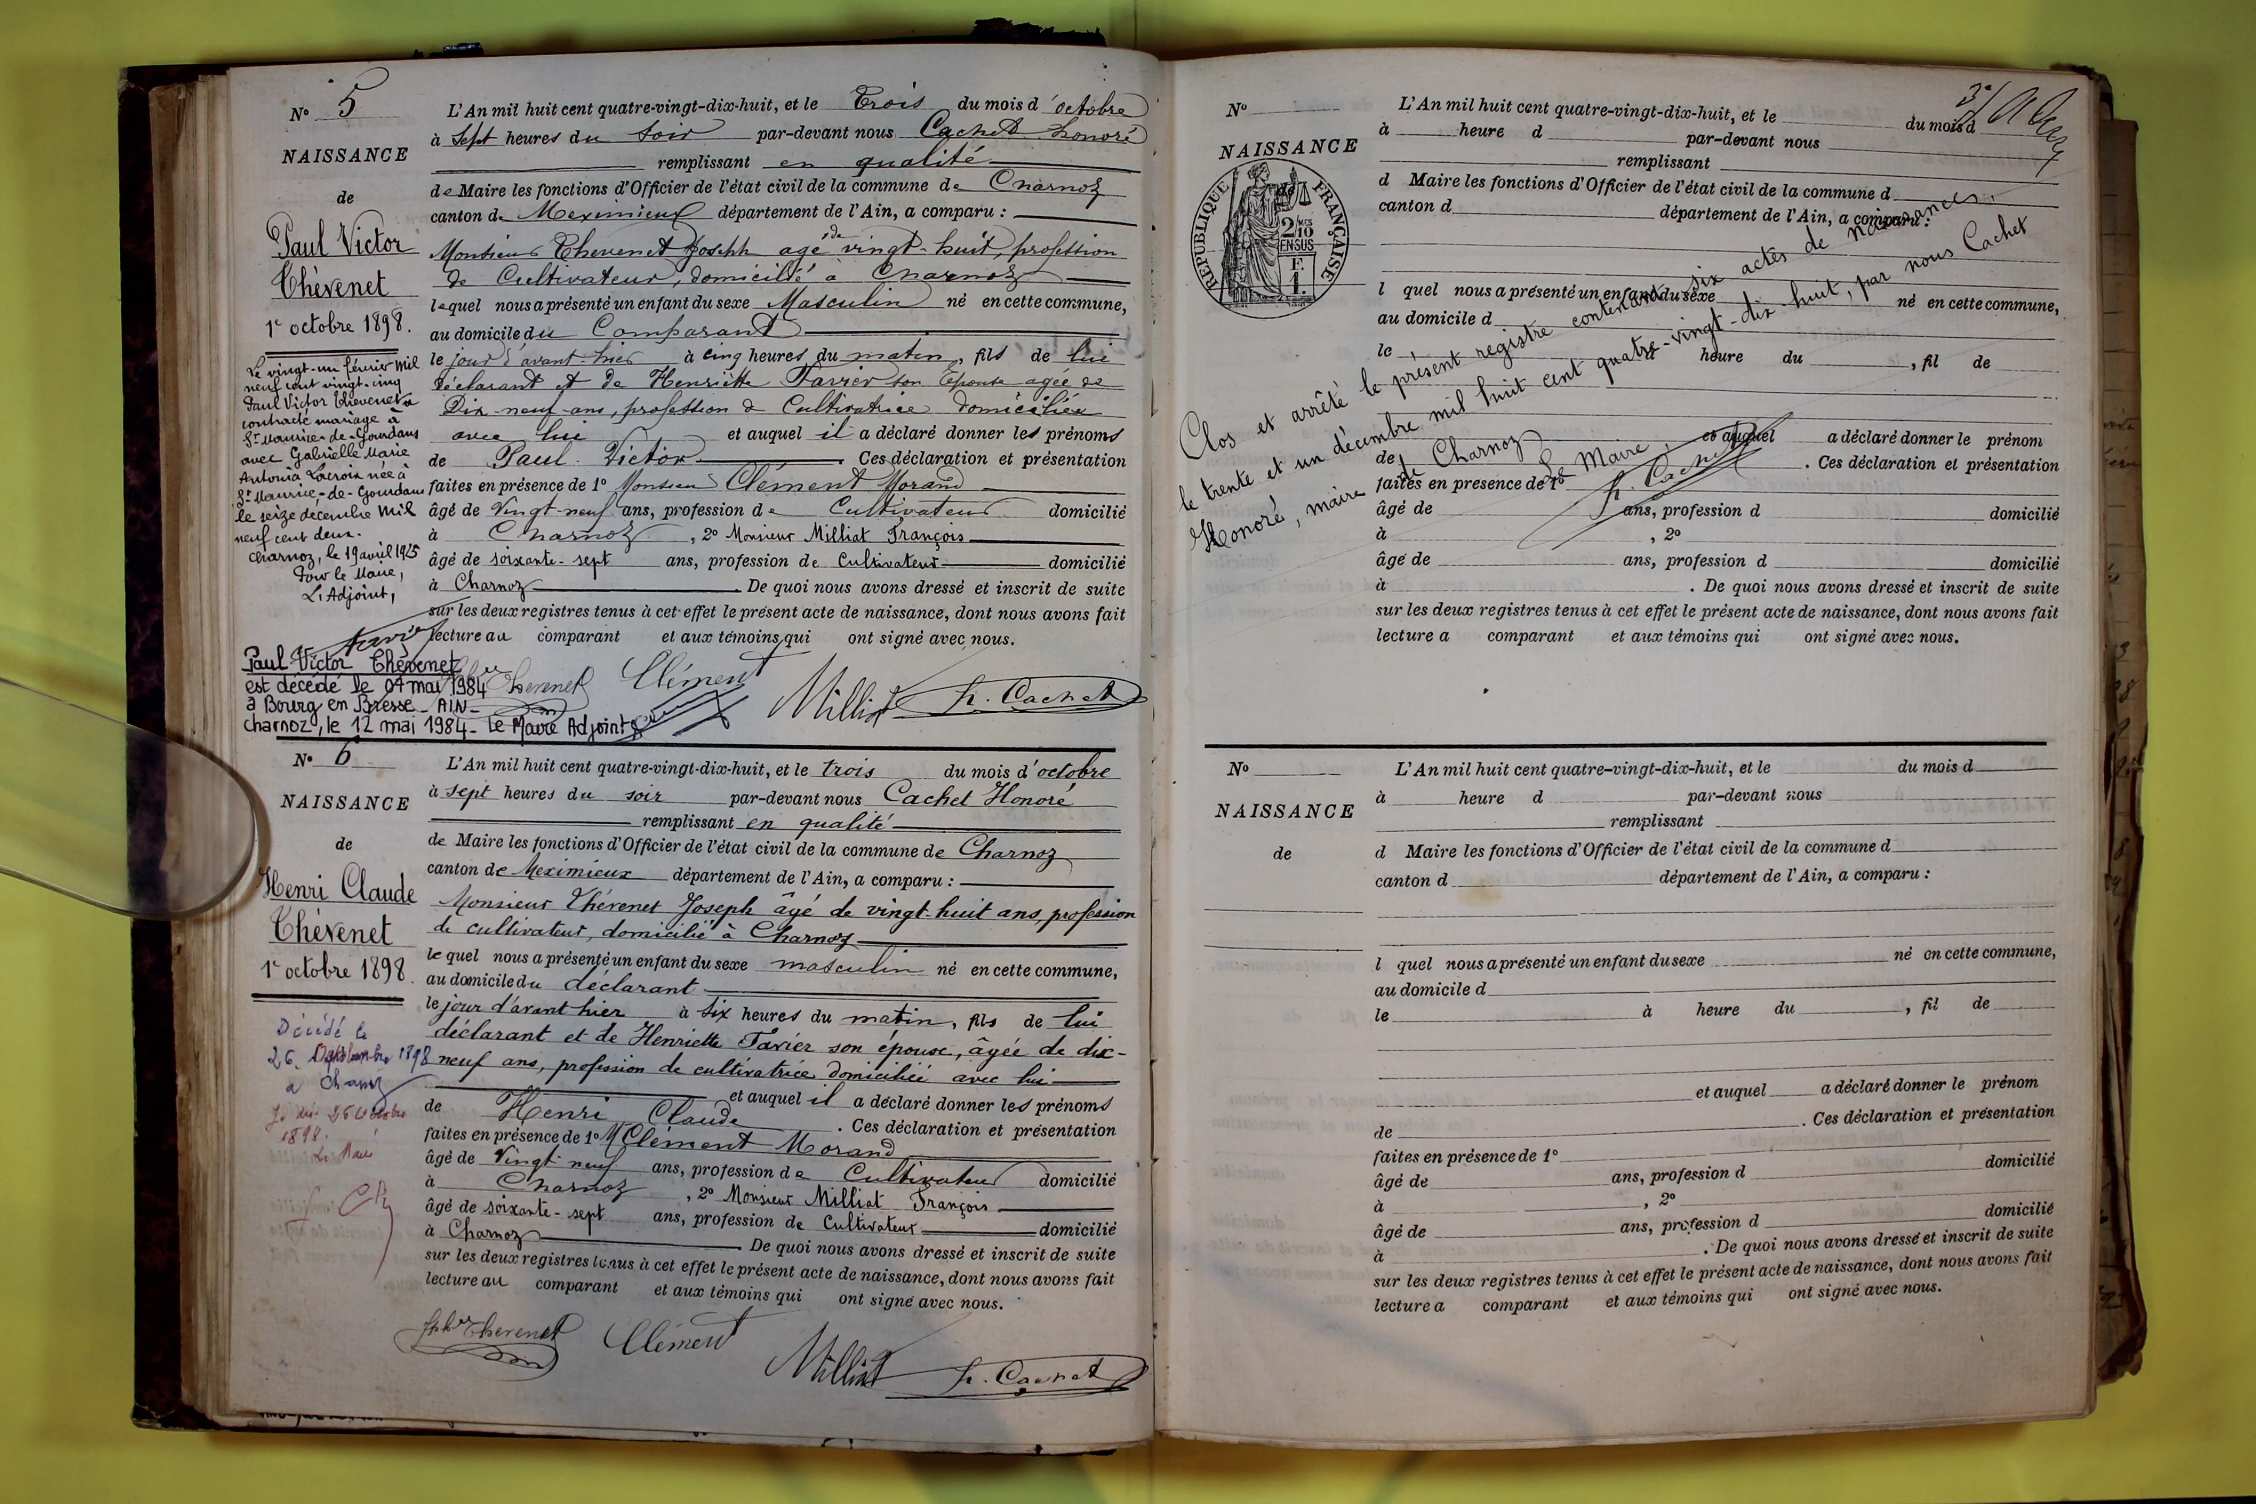 N° 5
NAISSANCE
de
Paul Victor
Thévenet
1er octobre 1898.
Le vingt-un février mil
neuf cent vingt-cinq
Paul Victor Thevenet a
contracté mariage à
St Maurice-de-Gourdans
avec Gabrielle Marie
Antonia Lacroix née à
St Maurice-de-Gourdans
le seize décembre mil
neuf cent deux.
Charnoz, le 19 avril 1925
Pour le Maire,
L'Adjoint,
Paul Victor Thévenet
est décédé le 04 mai 1984
à Bourg en Bresse - AIN -
Charnoz, le 12 mai 1984 - Le Maire Adjoint
L'An mil huit cent quatre-vingt-dix-huit, et le Trois du mois d'octobre
à Sept heures du Soir par-devant nous Cachet Honoré
remplissant en qualité
de Maire les fonctions d'Officier de l'état civil de la commune de Charnoz
canton de Meximieux département de l'Ain, a comparu :
Monsieur Thevenet Joseph agé de vingt-huit, profession
de Cultivateur, domicilié à Charnoz
lequel nous a présenté un enfant du sexe Masculin né en cette commune,
au domicile du Comparant
le jour d'avant-hier à cinq heures du matin, fils de lui
déclarant et de Henriette Favier son Epouse agée de
Dix-neuf ans, profession de Cultivatrice domiciliée
avec lui et auquel il a déclaré donner les prénoms
de Paul Victor Ces déclaration et présentation
faites en présence de 1° Monsieur Clément Morand
âgé de Vingt-neuf ans, profession de Cultivateur domicilié
à Charnoz, 2° Monsieur Milliat François
âgé de soixante-sept ans, profession de Cultivateur domicilié
à Charnoz. De quoi nous avons dressé et inscrit de suite
sur les deux registres tenus à cet effet le présent acte de naissance, dont nous avons fait
lecture au comparant et aux témoins qui ont signé avec nous.
Thevenet Clément Milliat h. Cachet
N° 6
NAISSANCE
de
Henri Claude
Thévenet
1er octobre 1898.
Décédé le
26 1898
a Charnoz
26 Octobre
1898.
Le Maire
L'An mil huit cent quatre-vingt-dix-huit, et le trois du mois d'octobre
à sept heures du soir par-devant nous Cachet Honoré
remplissant en qualité
de Maire les fonctions d'Officier de l'état civil de la commune de Charnoz
canton de Meximieux département de l'Ain, a comparu :
Monsieur Thévenet Joseph âgé de vingt-huit ans, profession
de cultivateur, domicilié à Charnoz
lequel nous a présenté un enfant du sexe masculin né en cette commune,
au domicile du déclarant
le jour d'avant hier à six heures du matin, fils de lui
déclarant et de Henriette Favier son épouse, âgée de dix-
neuf ans, profession de cultivatrice domiciliée avec lui
et auquel il a déclaré donner les prénoms
de Henri Claude. Ces déclaration et présentation
faites en présence de 1° M Clément Morand
âgé de Vingt neuf ans, profession de Cultivateur domicilié
à Charnoz, 2° Monsieur Milliat François
âgé de soixante-sept ans, profession de Cultivateur domicilié
à Charnoz De quoi nous avons dressé et inscrit de suite
sur les deux registres tenus à cet effet le présent acte de naissance, dont nous avons fait
lecture au comparant et aux témoins qui ont signé avec nous.
Thevenet Clément Milliat h. Cachet
N°
NAISSANCE
RÉPUBLIQUE FRANÇAISE
2/10
EN SUS
L'An mil huit cent quatre-vingt-dix-huit, et le du mois d
à heure d par-devant nous
remplissant
d Maire les fonctions d'Officier de l'état civil de la commune d
canton d département de l'Ain, a comparu :
l quel nous a présenté un enfant du sexe né en cette commune,
au domicile d
le heure du , fil de
et auquel a déclaré donner le prénom
de . Ces déclaration et présentation
faites en présence de 1°
âgé de ans, profession d domicilié
à , 2°
âgé de ans, profession d domicilié
à . De quoi nous avons dressé et inscrit de suite
sur les deux registres tenus à cet effet le présent acte de naissance, dont nous avons fait
lecture a comparant et aux témoins qui ont signé avec nous.
Clos et arrêté le présent registre contenant six actes de naissances,
le trente et un décembre mil huit cent quatre-vingt-dix huit, par nous Cachet
Honoré, maire de Charnoz
Le Maire,
h. Cachet
N°
NAISSANCE
de
L'An mil huit cent quatre-vingt-dix-huit, et le du mois d
à heure d par-devant nous
remplissant
d Maire les fonctions d'Officier de l'état civil de la commune d
canton d département de l'Ain, a comparu :
l quel nous a présenté un enfant du sexe né en cette commune,
au domicile d
le à heure du , fil de
et auquel a déclaré donner le prénom
de . Ces déclaration et présentation
faites en présence de 1°
âgé de ans, profession d domicilié
à , 2°
âgé de ans, profession d domicilié
à . De quoi nous avons dressé et inscrit de suite
sur les deux registres tenus à cet effet le présent acte de naissance, dont nous avons fait
lecture a comparant et aux témoins qui ont signé avec nous.